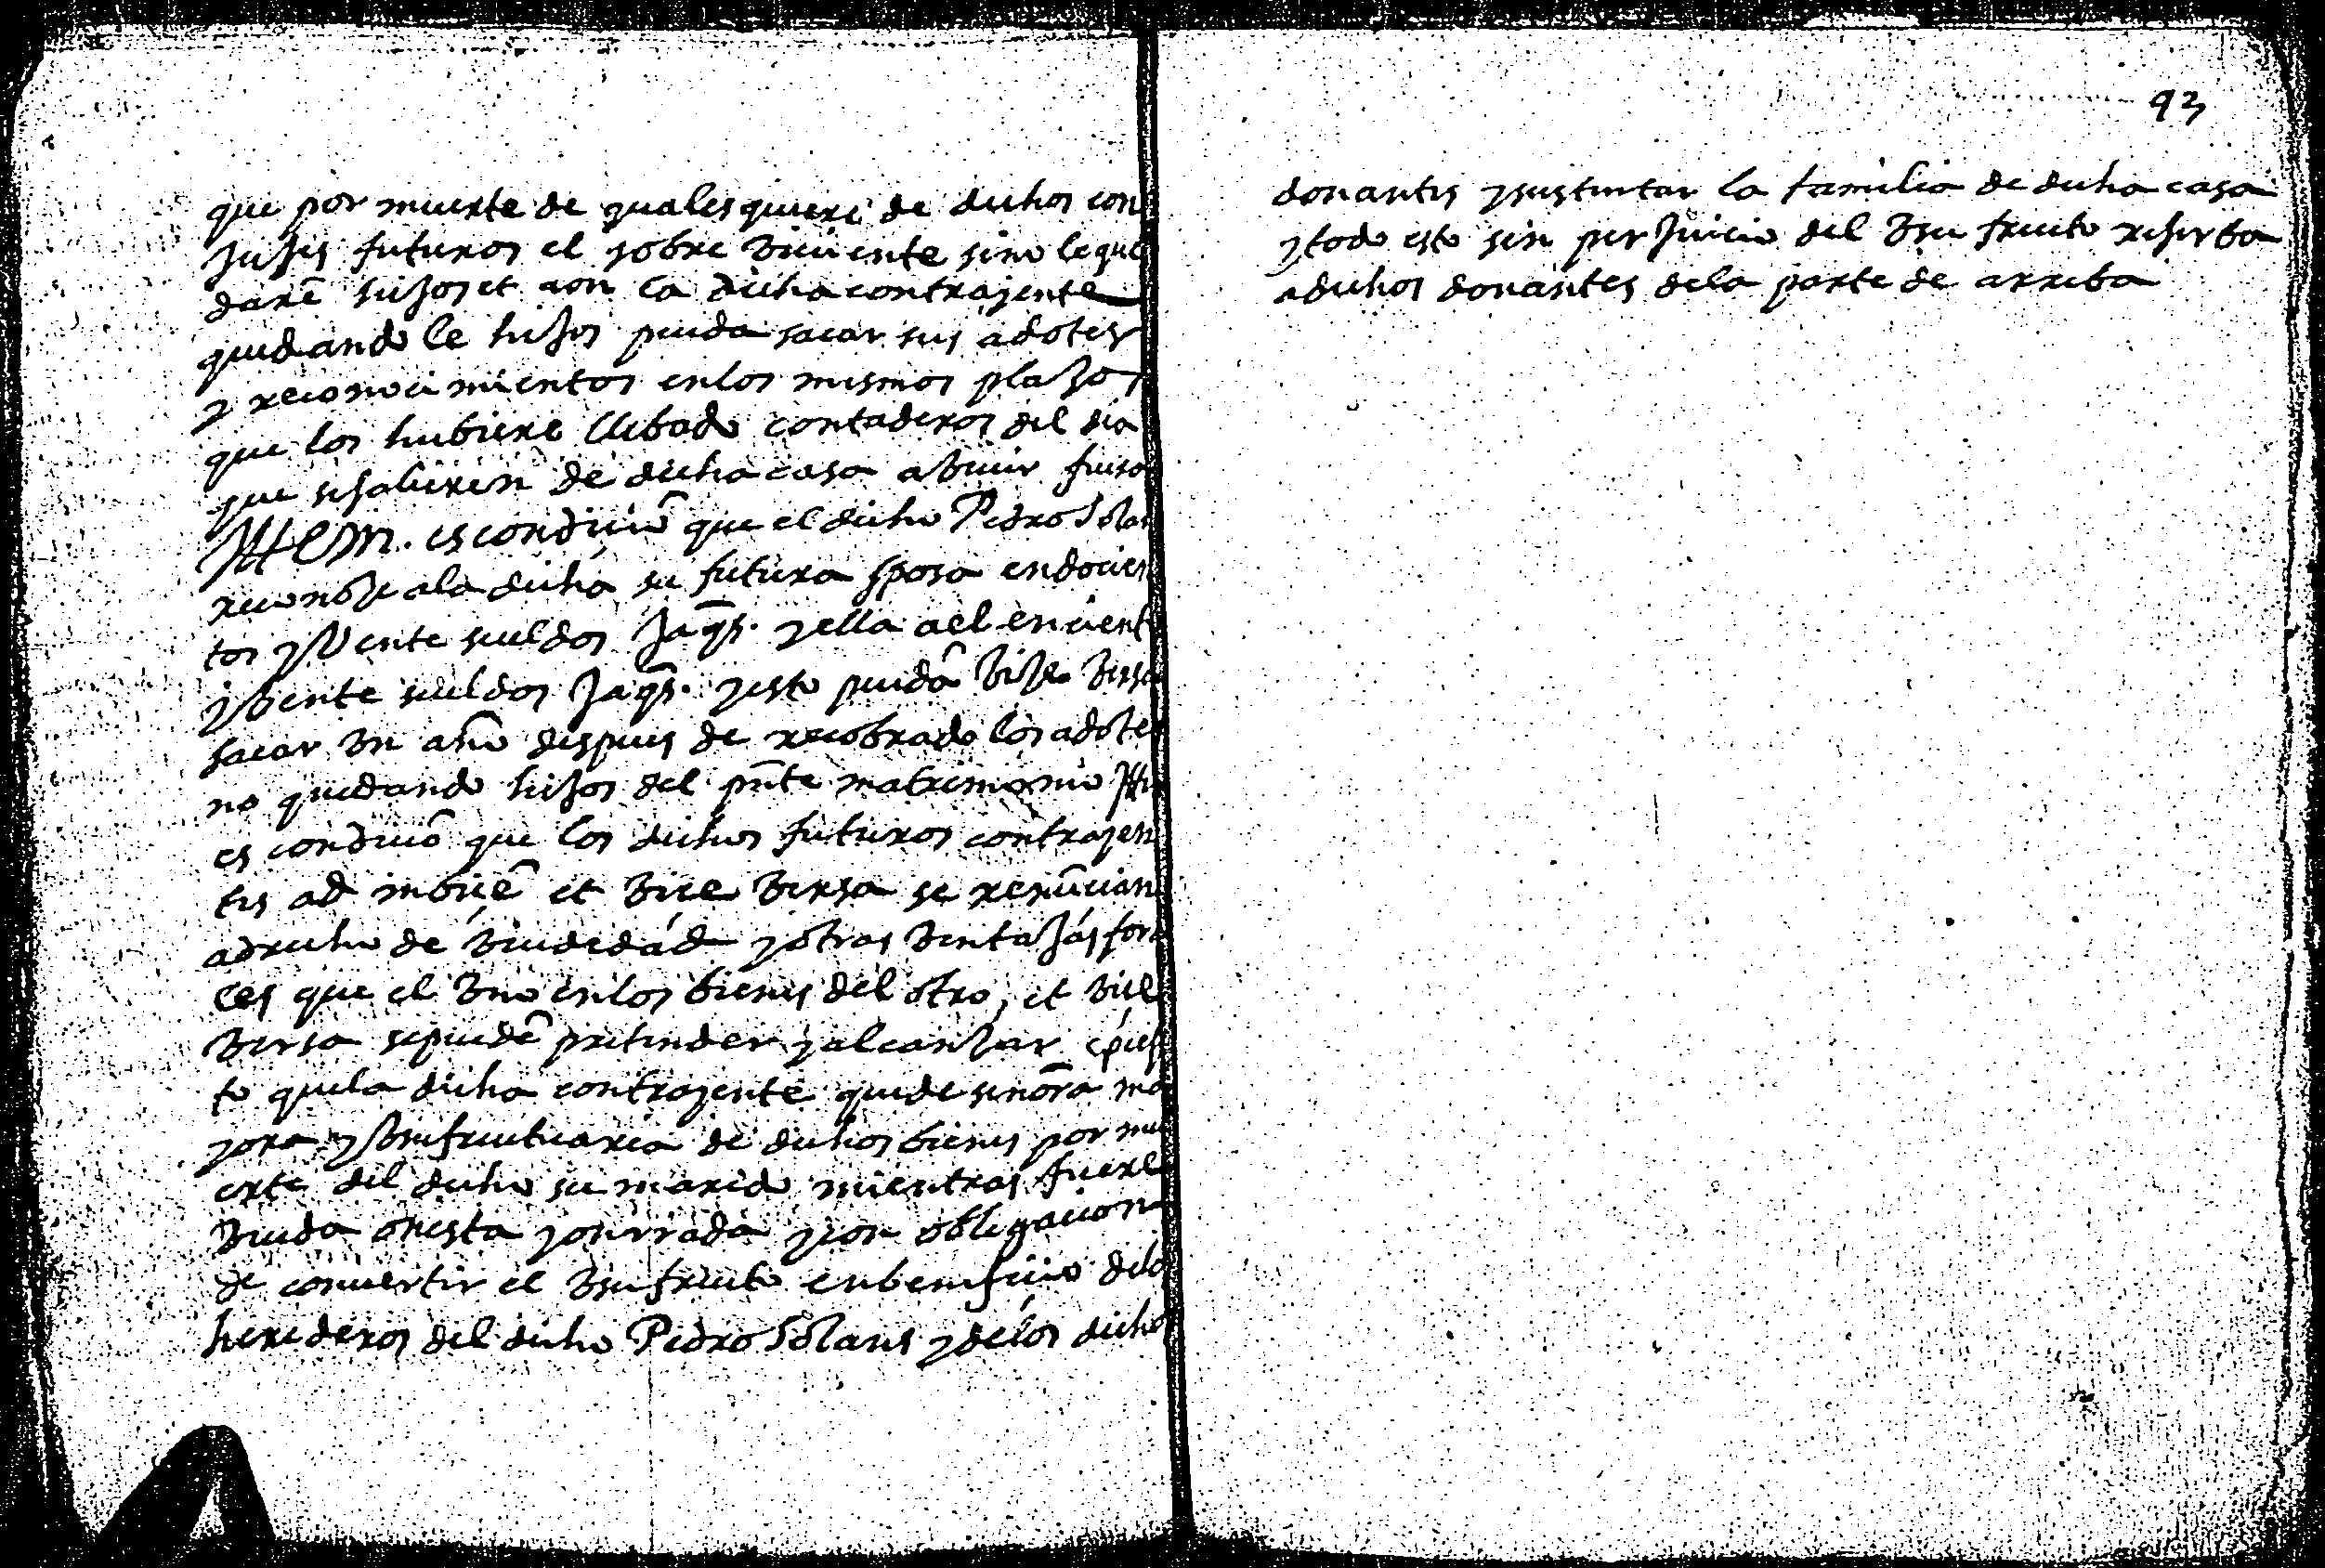 que por muerte de qualesquiere de dichos con
juJes futuros el sobre biuiente sino le que
darē hiJos et aon la dicha contrayente
quedando le hiJos pueda sacar sus adotes
y reconocimientos enlos mismos plaJos
que los hubiere llebado contaderos del dia
que se saliere de dicha casa a biuir fuera
Ittem. es condiciō que el dicho Pedro Solan
reconoJe ala dicha su futura sposa en docien
tos y bente sueldos Jaqs. y ella a el en cient
y bente sueldos Jaqs. y esto puedā biJe bersa
sacar bn año despues de recobrado los adotes
no quedando hiJos del pn̄te matrimonio Itt
es condiciō que los dichos futuros contrayen
tes ad inbicē et bice bersa se renūcian
a drecho de biudedad y otras bentaJas fora
les que el bno enlos bienes del otro, et bice
bersa se puedē pretender y alcanJar, epto
to quela dicha contrayente quede senōra ma
yora y bsufructuaria de dichos bienes por mu
erte del dicho su marido mientras fuere
biuda onesta y onrrada y con obligacion
de conuertir el bsufructo en beneficio delos
herederos del dicho Pedro Solans y de los dichos
93
donantes y sustentar la familia de dicha casa
y todo esto sin perJuicio del bsu fructo reserba
a dichos donantes dela parte de arriba